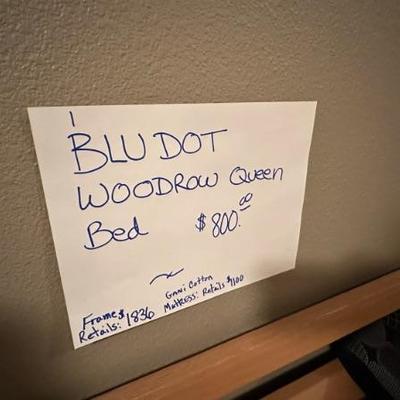 1
BLU DOT
WOODROW Queen
Bed $800.00
Frame $
Retails: 1836
Cotton
Mattress: Retails $1100